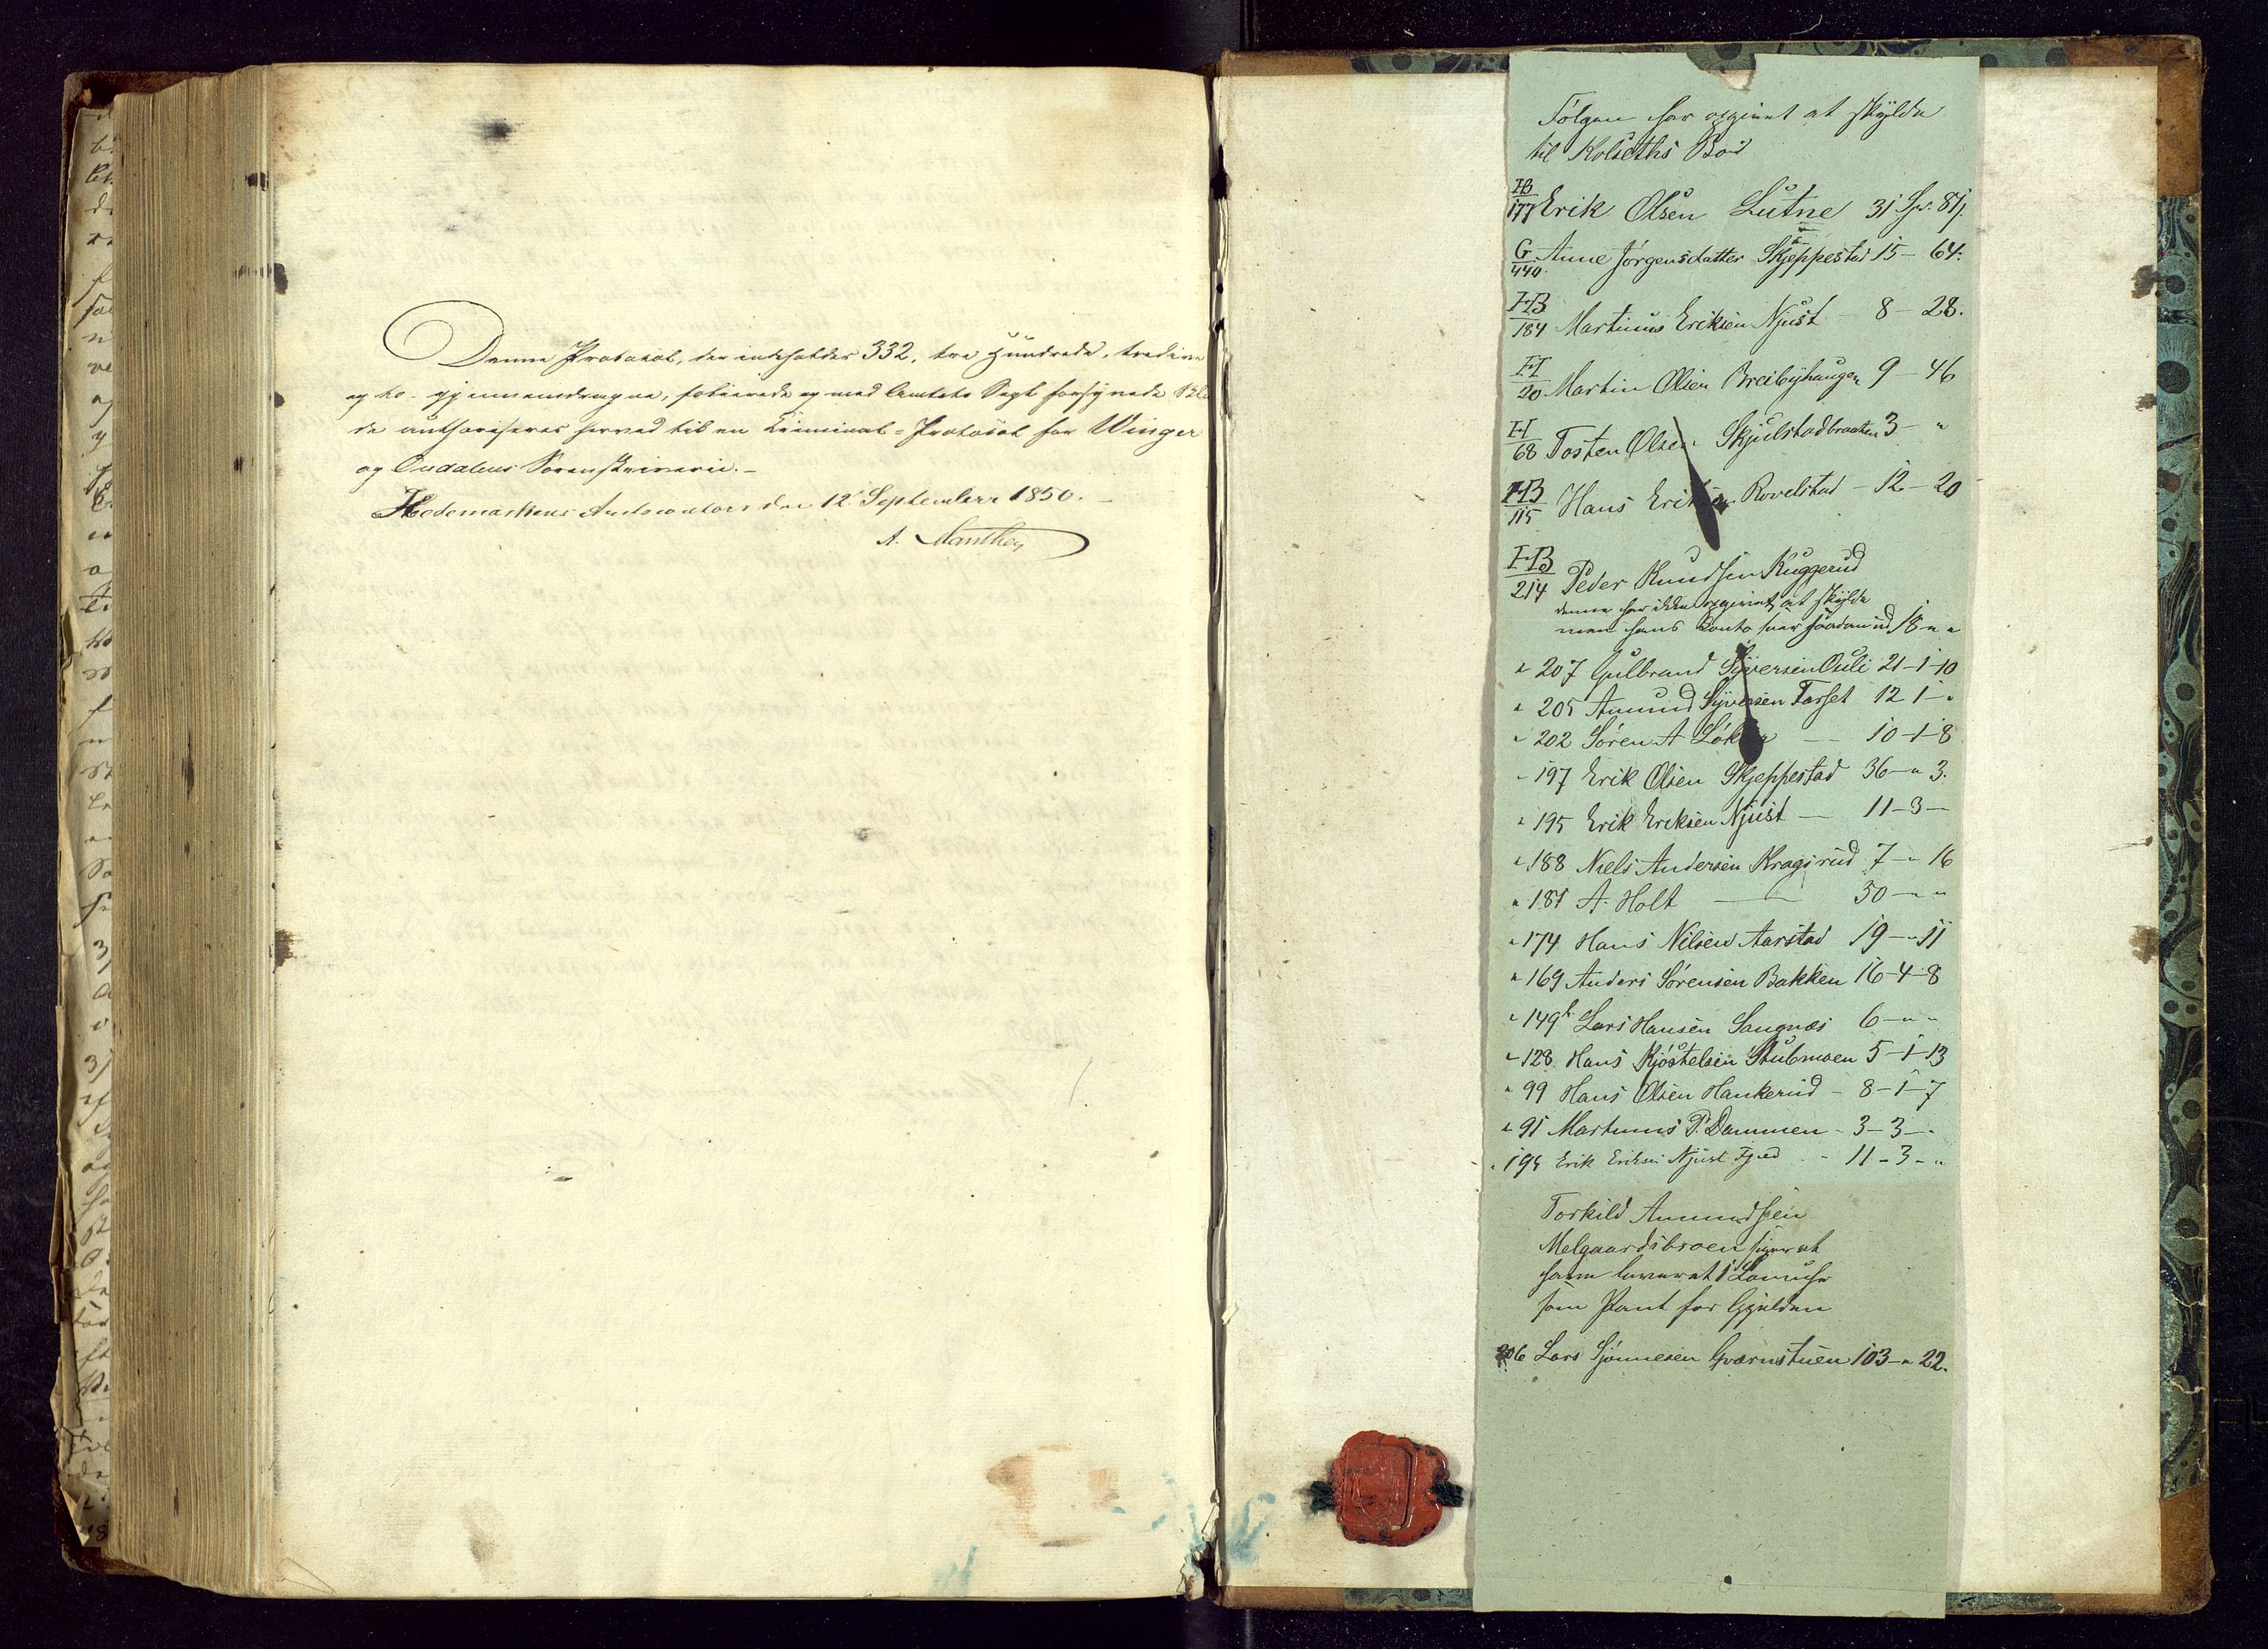 Denne Protokol, der indeholder 332, tre Hundrede, tredive
og to. gjennemdragne, folierede og med Amtets Segl forsynede Bla
de authoriseres herved til en Criminal-Protokol for Winger
og Oudalens Sorenskriverie.-
Hedemarkens Amtscontoir den 12 September 1850.-
A. Manthey
Følgen har opgivet at skylde
til Kolseths Bo
HB
177 Erik Olsen Lutne 31 Sp. 81ſ
G
440. Anne Jörgensdatter Skjeppestad 15 - 64.
HB
184 Martinus Eriksen Njust - 8 - 28.
H
20. Martin Olsen Breibyhaugen 9 - 46
H
68 Tosten Olsen Skjulstadbraaten 3 - "
HB
115 Hans Eriksen Rovelstad - 12 - 20
HB
214 Peder Knudsen Kuggerud
denne har ikke opgivet at skylde
men hans Conto ud 18 " "
" 207 Gulbrand Syversen Ouli 21-1-10
" 205 Amund Syversen Farset 12 1-"
" 202 Sören A Løken - 10-1-8
" 197 Erik Olsen Skjeppestad 36-" 3.
" 195 Erik Eriksen Njust - 11-3-
" 188 Niels Andersen Kragsrud 7-" 16
" 181 A. Holt - 50-" "
" 174 Hans Nilsen Aarstad 19-"-11
" 169 Anders Sörensen Bakken 16-4-8
" 149 Lars Hansen Sangnæs 6-"-"
" 128 Hans Kjöstelsen Stubmoen 5-1-13
" 99 Hans Olsen Hankerud - 8-1-7
" 91 Martinus P. Dammen - 3-3-"
" 195 Erik Eriksen Njust - 11-3-"
Torkild Amundsen
Melgaardsbroen siger at
have leveret 1
som Pant for Gjelden
206 Lars Sjønnesen Qværnstuen 103-" 22.